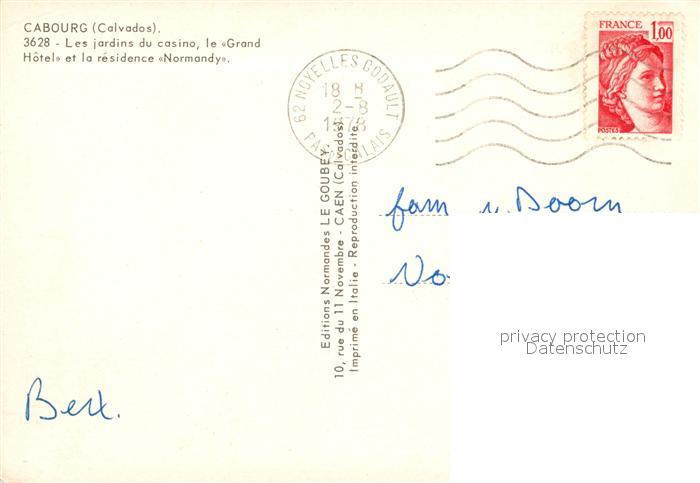 CABOURG (Calvados).
3628 - Les jardins du casino, le «Grand
Hôtel» et la résidence «Normandy».
FRANCE
1,00
POSTES
62 NOYELLES GODAULT
18 H
2-8
1978
PAS DE CALAIS
Editions Normandes LE GOUBEY.
10, rue du 11 Novembre - CAEN (Calvados)
Imprimé en Italie - Reproduction interdite.
fam v. Doorn
privacy protection
Datenschutz
Bert.